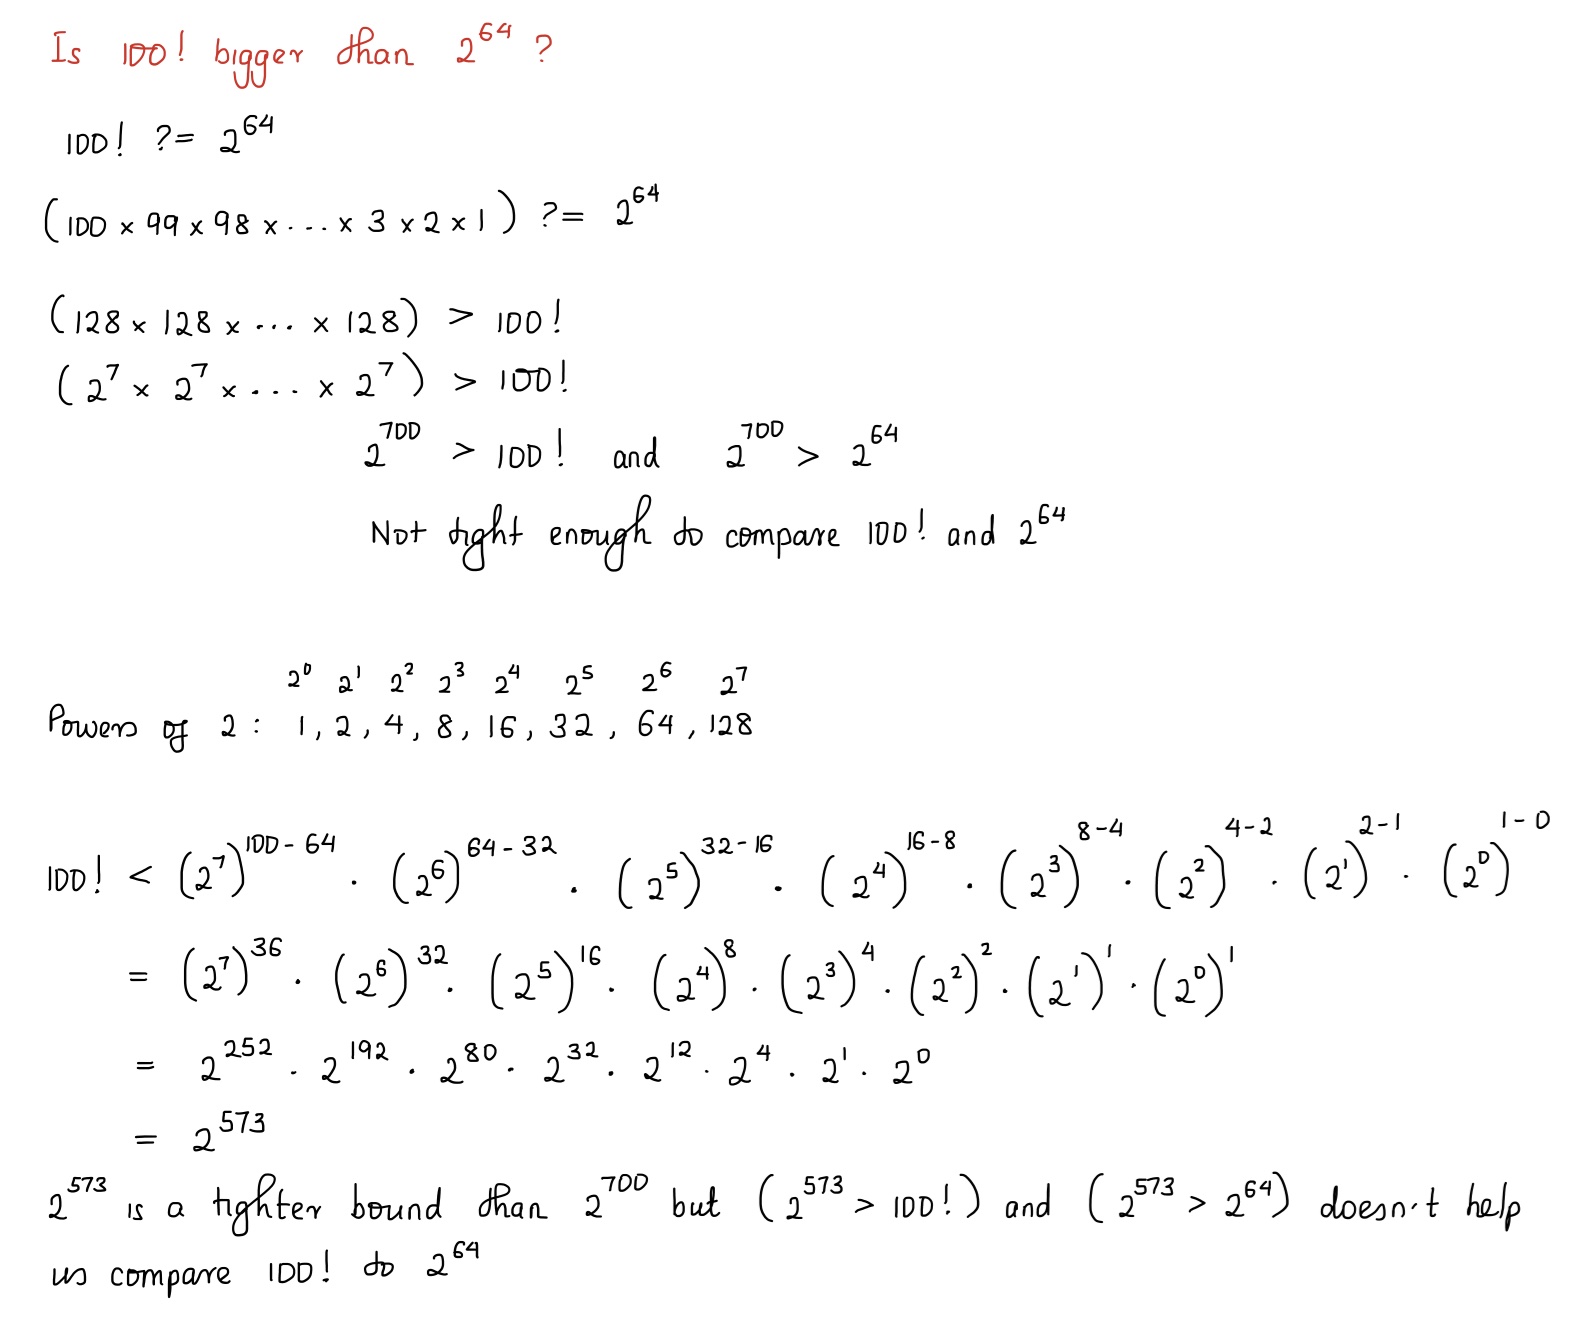 Is 100! bigger than 2^64 ?
100! ?= 2^64
(100 × 99 × 98 × ... × 3 × 2 × 1) ?= 2^64
(128 × 128 × ... × 128) > 100!
(2^7 × 2^7 × ... × 2^7) > 100!
2^700 > 100! and 2^700 > 2^64
Not tight enough to compare 100! and 2^64
2^0 2^1 2^2 2^3 2^4 2^5 2^6 2^7
Powers of 2 : 1, 2, 4, 8, 16, 32, 64, 128
100! < (2^7)^(100-64) · (2^6)^(64-32) · (2^5)^(32-16) · (2^4)^(16-8) · (2^3)^(8-4) · (2^2)^(4-2) · (2^1)^(2-1) · (2^0)^(1-0)
= (2^7)^36 · (2^6)^32 · (2^5)^16 · (2^4)^8 · (2^3)^4 · (2^2)^2 · (2^1)^1 · (2^0)^1
= 2^252 · 2^192 · 2^80 · 2^32 · 2^12 · 2^4 · 2^1 · 2^0
= 2^573
2^573 is a tighter bound than 2^700 but (2^573 > 100!) and (2^573 > 2^64) doesn't help
us compare 100! to 2^64